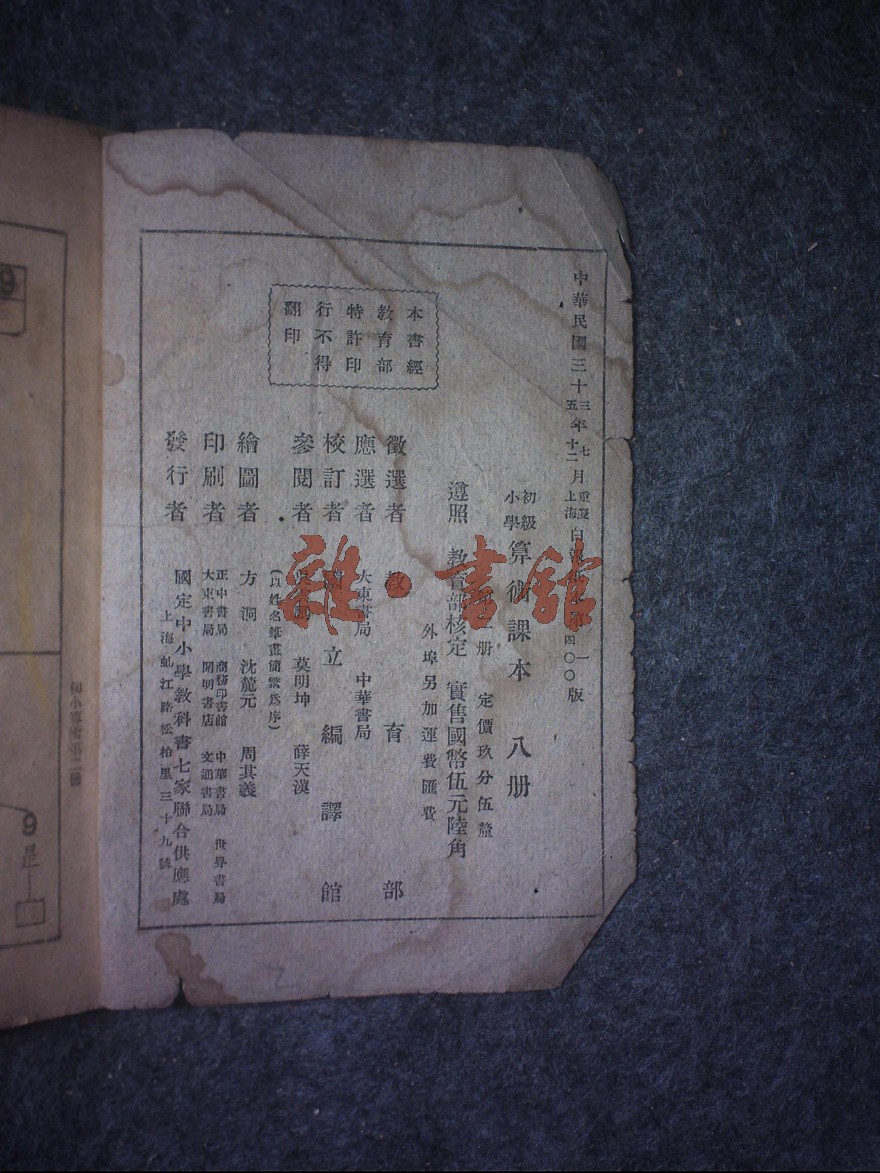 中華民國三十三年七月重慶
五年十二月上海白報紙本第一四〇〇版
初級小學算術課本 八册
册 定價玖分伍釐
遵照 教育部核定 實售國幣伍元陸角
外埠另加運費匯費
本書經
教育部
特許印
行不得
翻印
徵選者 教育部
應選者 大東書局 中華書局
校訂者 國立編譯館
參閱者 莫明坤 薛天漢
(以姓名筆畫簡繁爲序)
繪圖者 方洞 沈麓元 周其義
印刷者 正中書局 商務印書館 中華書局 世界書局
大東書局 開明書店 文通書局
發行者 國定中小學教科書七家聯合供應處
上海虬江路松柏里三十九號
初小算術第二册
9
9
是
雜·書館